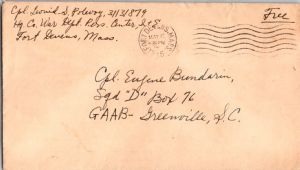 Cpl. Leonid S. Polevoy, 31131879
Hq Co. War Dept. Pers. Center,
Fort Devens, Mass.
Free
MASS.
Cpl. Eugene Bundarin,
Sqd "D" Box 76
GAAB- Greenville, S.C.